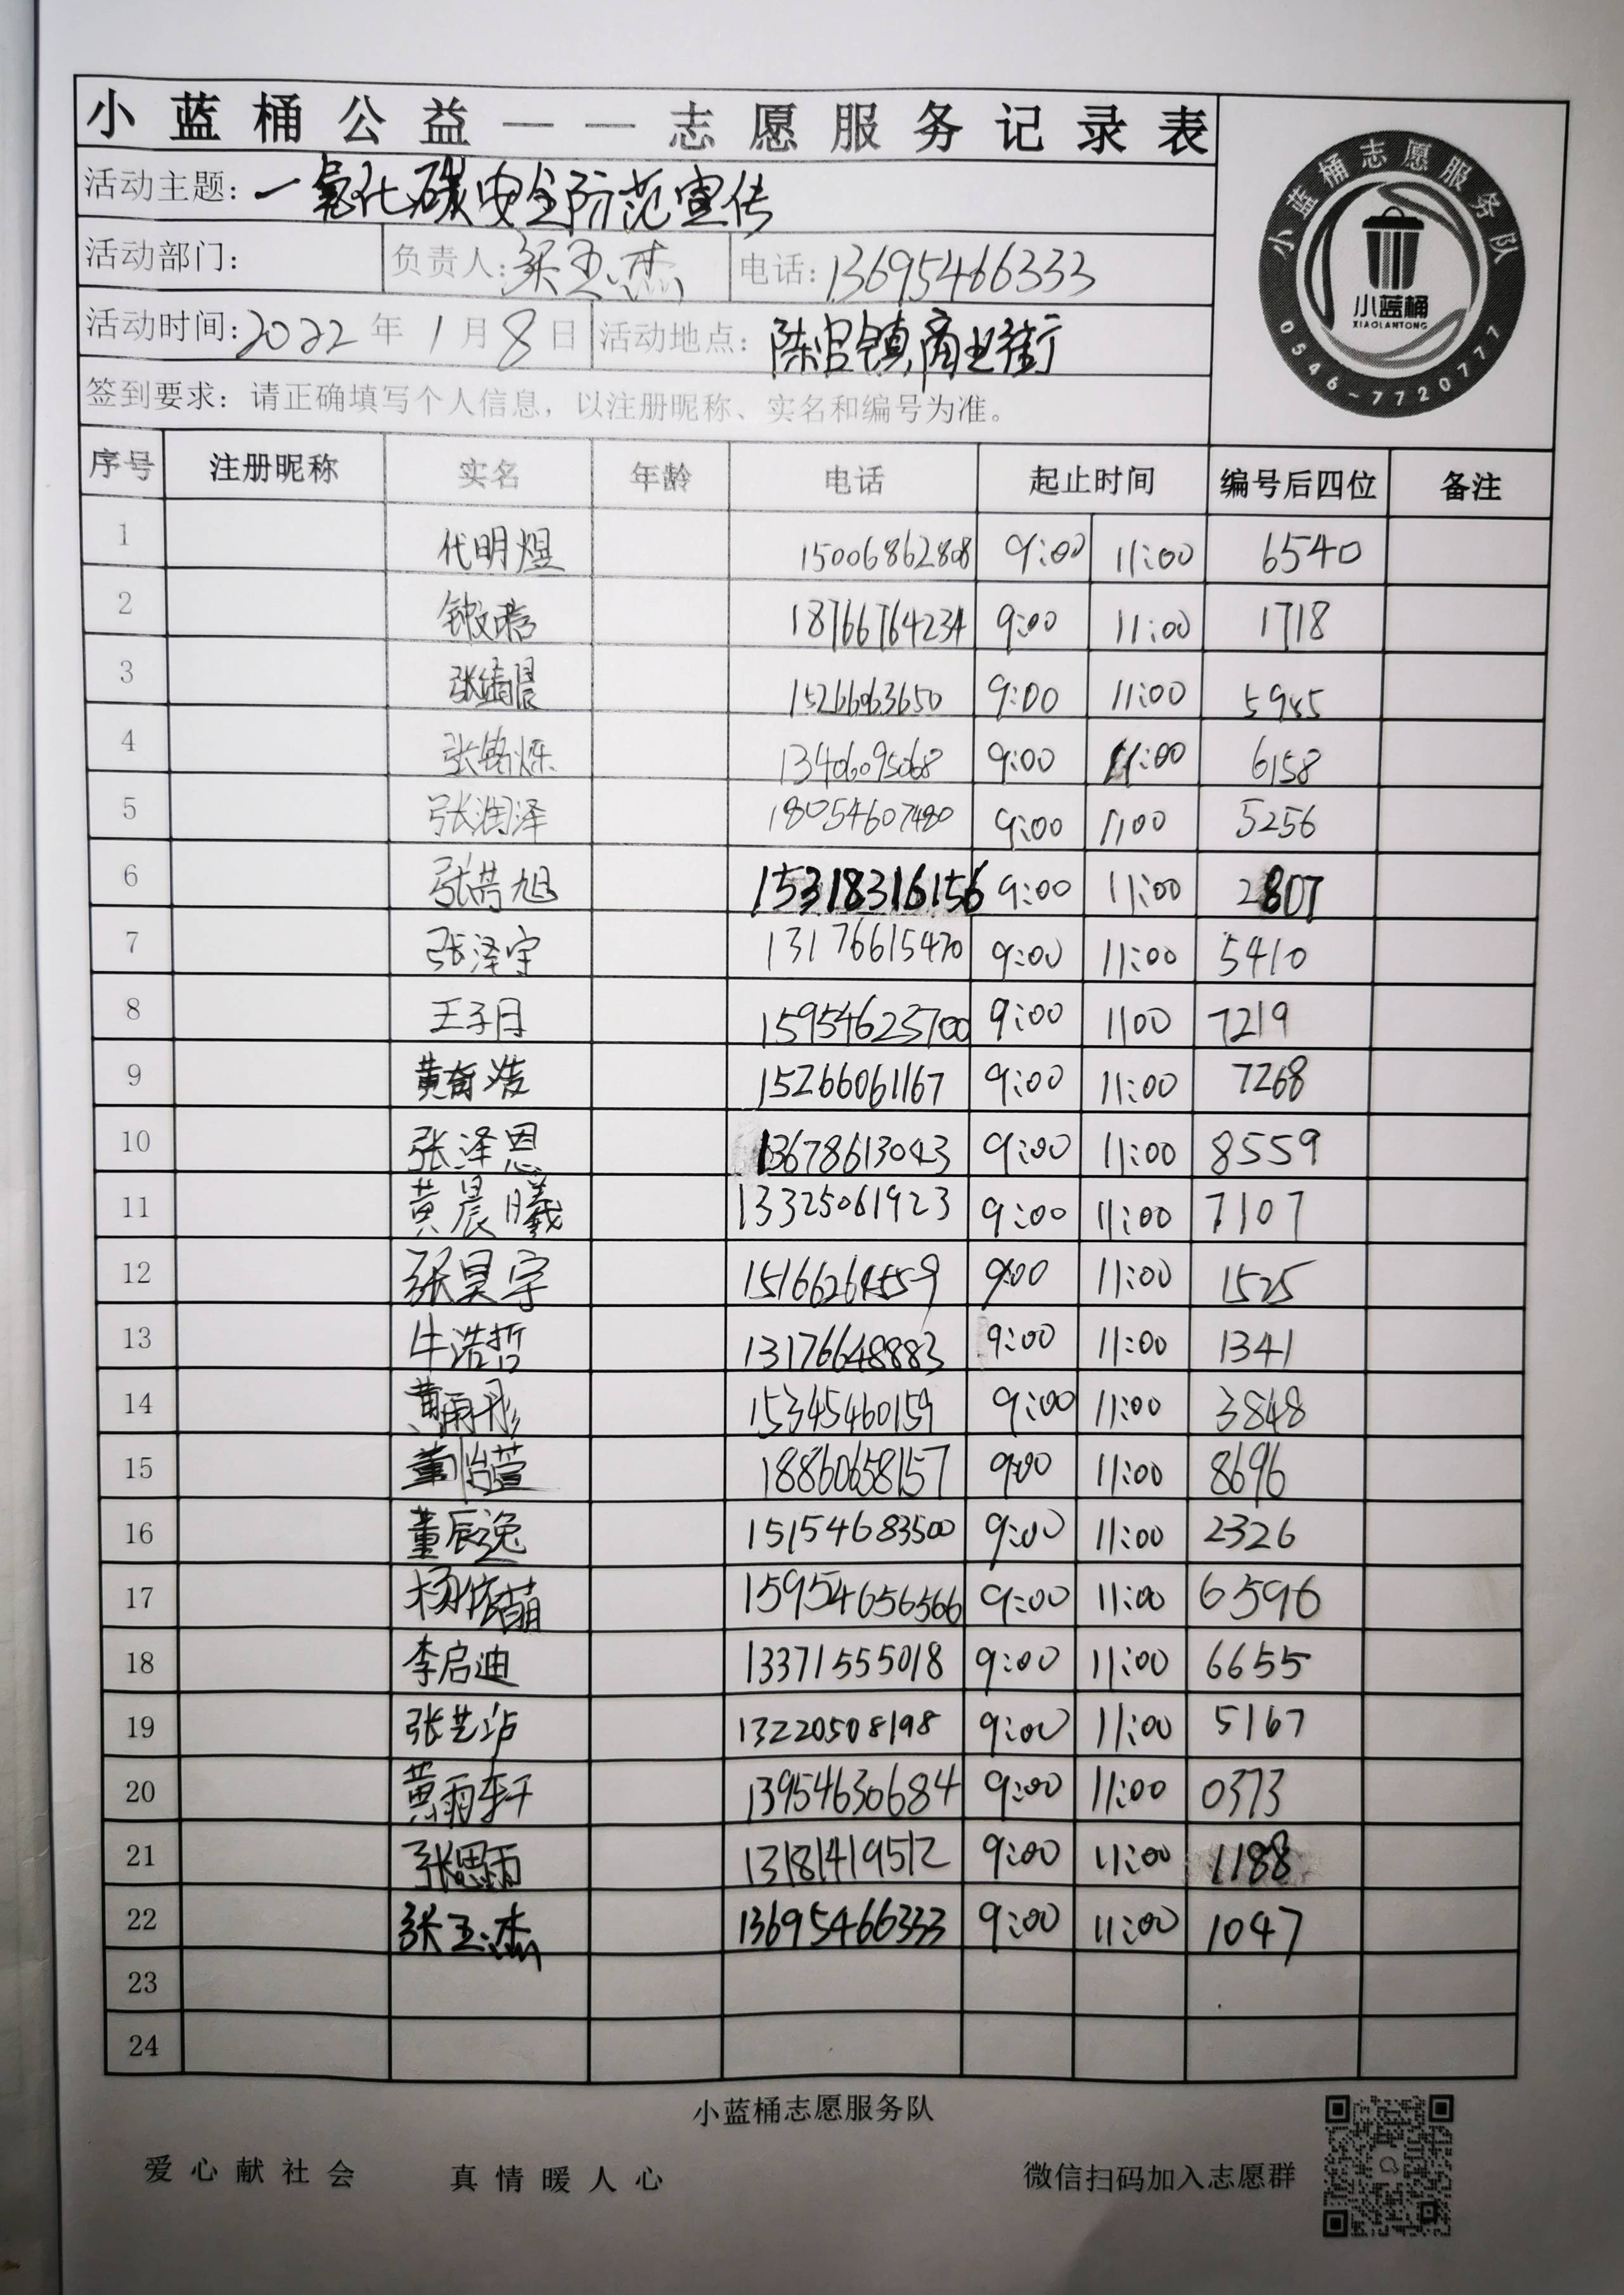 小蓝桶公益——志愿服务记录表
活动主题：一氧化碳安全防范宣传
活动部门： 负责人：张玉杰 电话：13695466333
活动时间：2022年1月8日 活动地点：陈官镇商业街
签到要求：请正确填写个人信息，以注册昵称、实名和编号为准。
小蓝桶志愿服务队
小蓝桶
XIAOLANTONG
0546-7720777
序号 注册昵称 实名 年龄 电话 起止时间 编号后四位 备注
1 代明煜 15006862808 9:00 11:00 6540
2 18766764234 9:00 11:00 1718
3 张婧晨 15266063650 9:00 11:00 5945
4 张铭烁 13406095068 9:00 11:00 6158
5 张润泽 18054607480 9:00 11:00 5256
6 张芳旭 15318316156 9:00 11:00 2807
7 张泽宇 13176615470 9:00 11:00 5410
8 王子月 15954623700 9:00 1100 7219
9 黄奋浩 15266061167 9:00 11:00 7268
10 张泽恩 13678613043 9:00 11:00 8559
11 黄晨曦 13325061923 9:00 11:00 7107
12 张昊宇 15166264559 9:00 11:00 1525
13 牛浩哲 13176648883 9:00 11:00 1341
14 黄雨彤 15345460159 9:00 11:00 3848
15 董怡萱 18860658157 9:00 11:00 8696
16 董辰逸 15154683500 9:00 11:00 2326
17 杨依萌 15954656566 9:00 11:00 6596
18 李启迪 13371555018 9:00 11:00 6655
19 张艺沾 13220508198 9:00 11:00 5167
20 黄雨轩 13954630684 9:00 11:00 0373
21 张思雨 13181419512 9:00 11:00 1188
22 张玉杰 13695466333 9:00 11:00 1047
23
24
小蓝桶志愿服务队
爱心献社会 真情暖人心 微信扫码加入志愿群